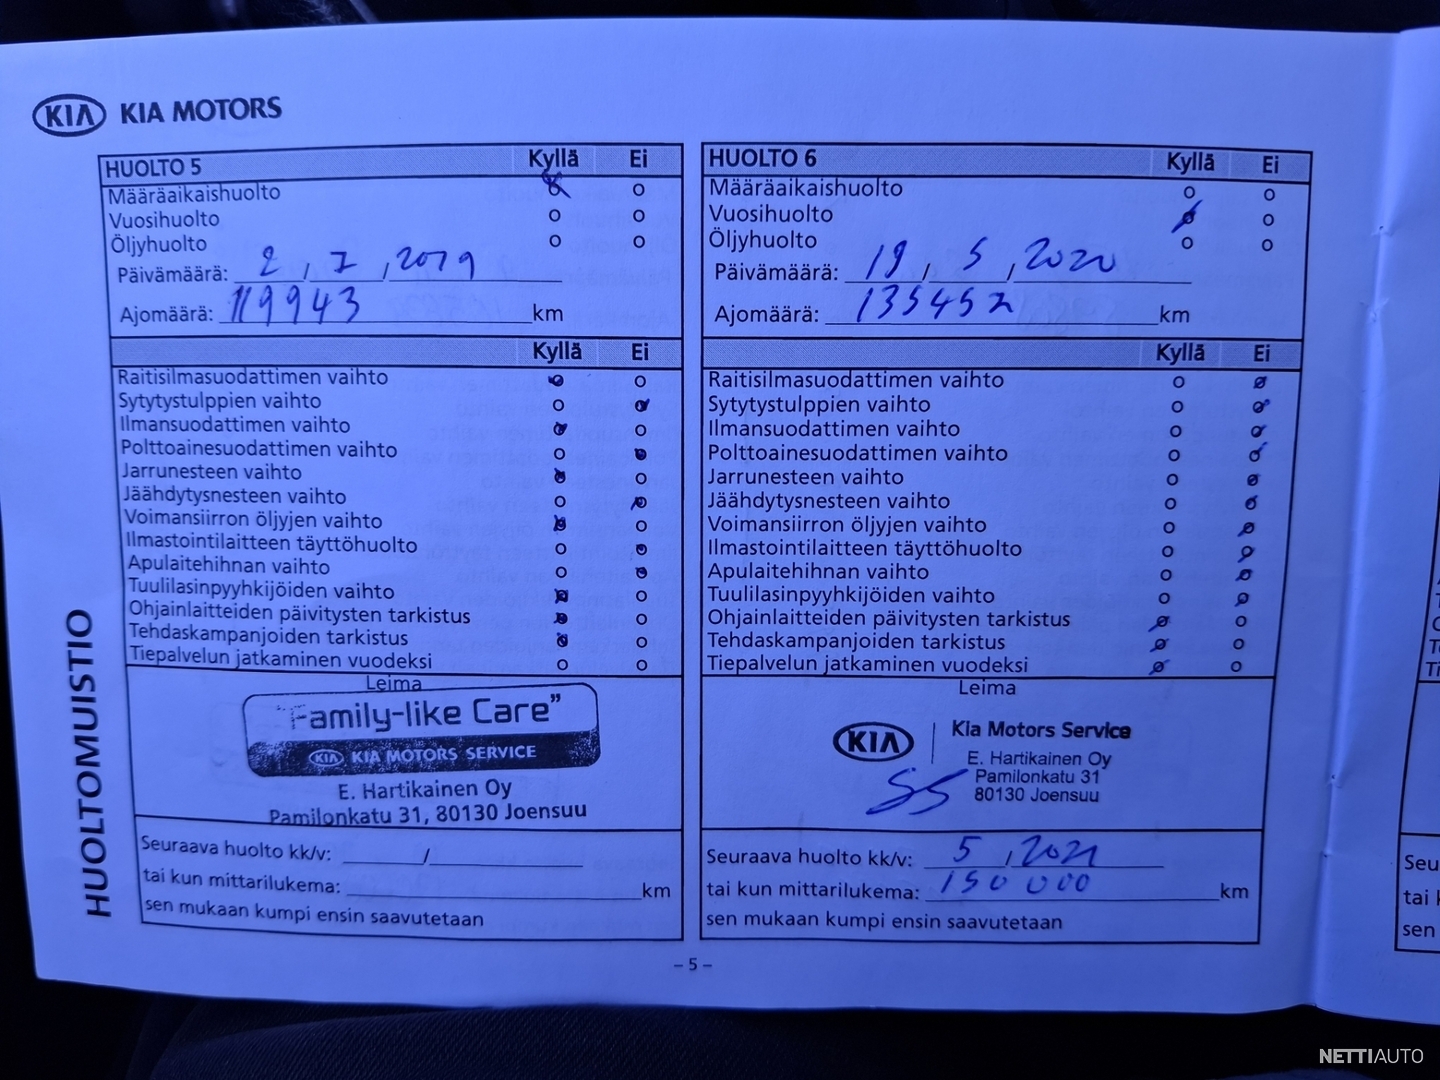 KIA KIA MOTORS
HUOLTO 5 Kyllä Ei
Määräaikaishuolto
Vuosihuolto
Öljyhuolto
Päivämäärä: 2 / 7 / 2019
Ajomäärä: 119943 km
Kyllä Ei
Raitisilmasuodattimen vaihto
Sytytystulppien vaihto
Ilmansuodattimen vaihto
Polttoainesuodattimen vaihto
Jarrunesteen vaihto
Jäähdytysnesteen vaihto
Voimansiirron öljyjen vaihto
Ilmastointilaitteen täyttöhuolto
Apulaitehihnan vaihto
Tuulilasinpyyhkijöiden vaihto
Ohjainlaitteiden päivitysten tarkistus
Tehdaskampanjoiden tarkistus
Tiepalvelun jatkaminen vuodeksi
Leima
"Family-like Care"
KIA KIA MOTORS SERVICE
E. Hartikainen Oy
Pamilonkatu 31, 80130 Joensuu
Seuraava huolto kk/v: /
tai kun mittarilukema: km
sen mukaan kumpi ensin saavutetaan
HUOLTO 6 Kyllä Ei
Määräaikaishuolto
Vuosihuolto
Öljyhuolto
Päivämäärä: 19 / 5 / 2020
Ajomäärä: 135452 km
Kyllä Ei
Raitisilmasuodattimen vaihto
Sytytystulppien vaihto
Ilmansuodattimen vaihto
Polttoainesuodattimen vaihto
Jarrunesteen vaihto
Jäähdytysnesteen vaihto
Voimansiirron öljyjen vaihto
Ilmastointilaitteen täyttöhuolto
Apulaitehihnan vaihto
Tuulilasinpyyhkijöiden vaihto
Ohjainlaitteiden päivitysten tarkistus
Tehdaskampanjoiden tarkistus
Tiepalvelun jatkaminen vuodeksi
Leima
KIA Kia Motors Service
E. Hartikainen Oy
Pamilonkatu 31
80130 Joensuu
Seuraava huolto kk/v: 5 / 2021
tai kun mittarilukema: 150 000 km
sen mukaan kumpi ensin saavutetaan
HUOLTOMUISTIO
– 5 –
Seu
tai k
sen
NETTIAUTO